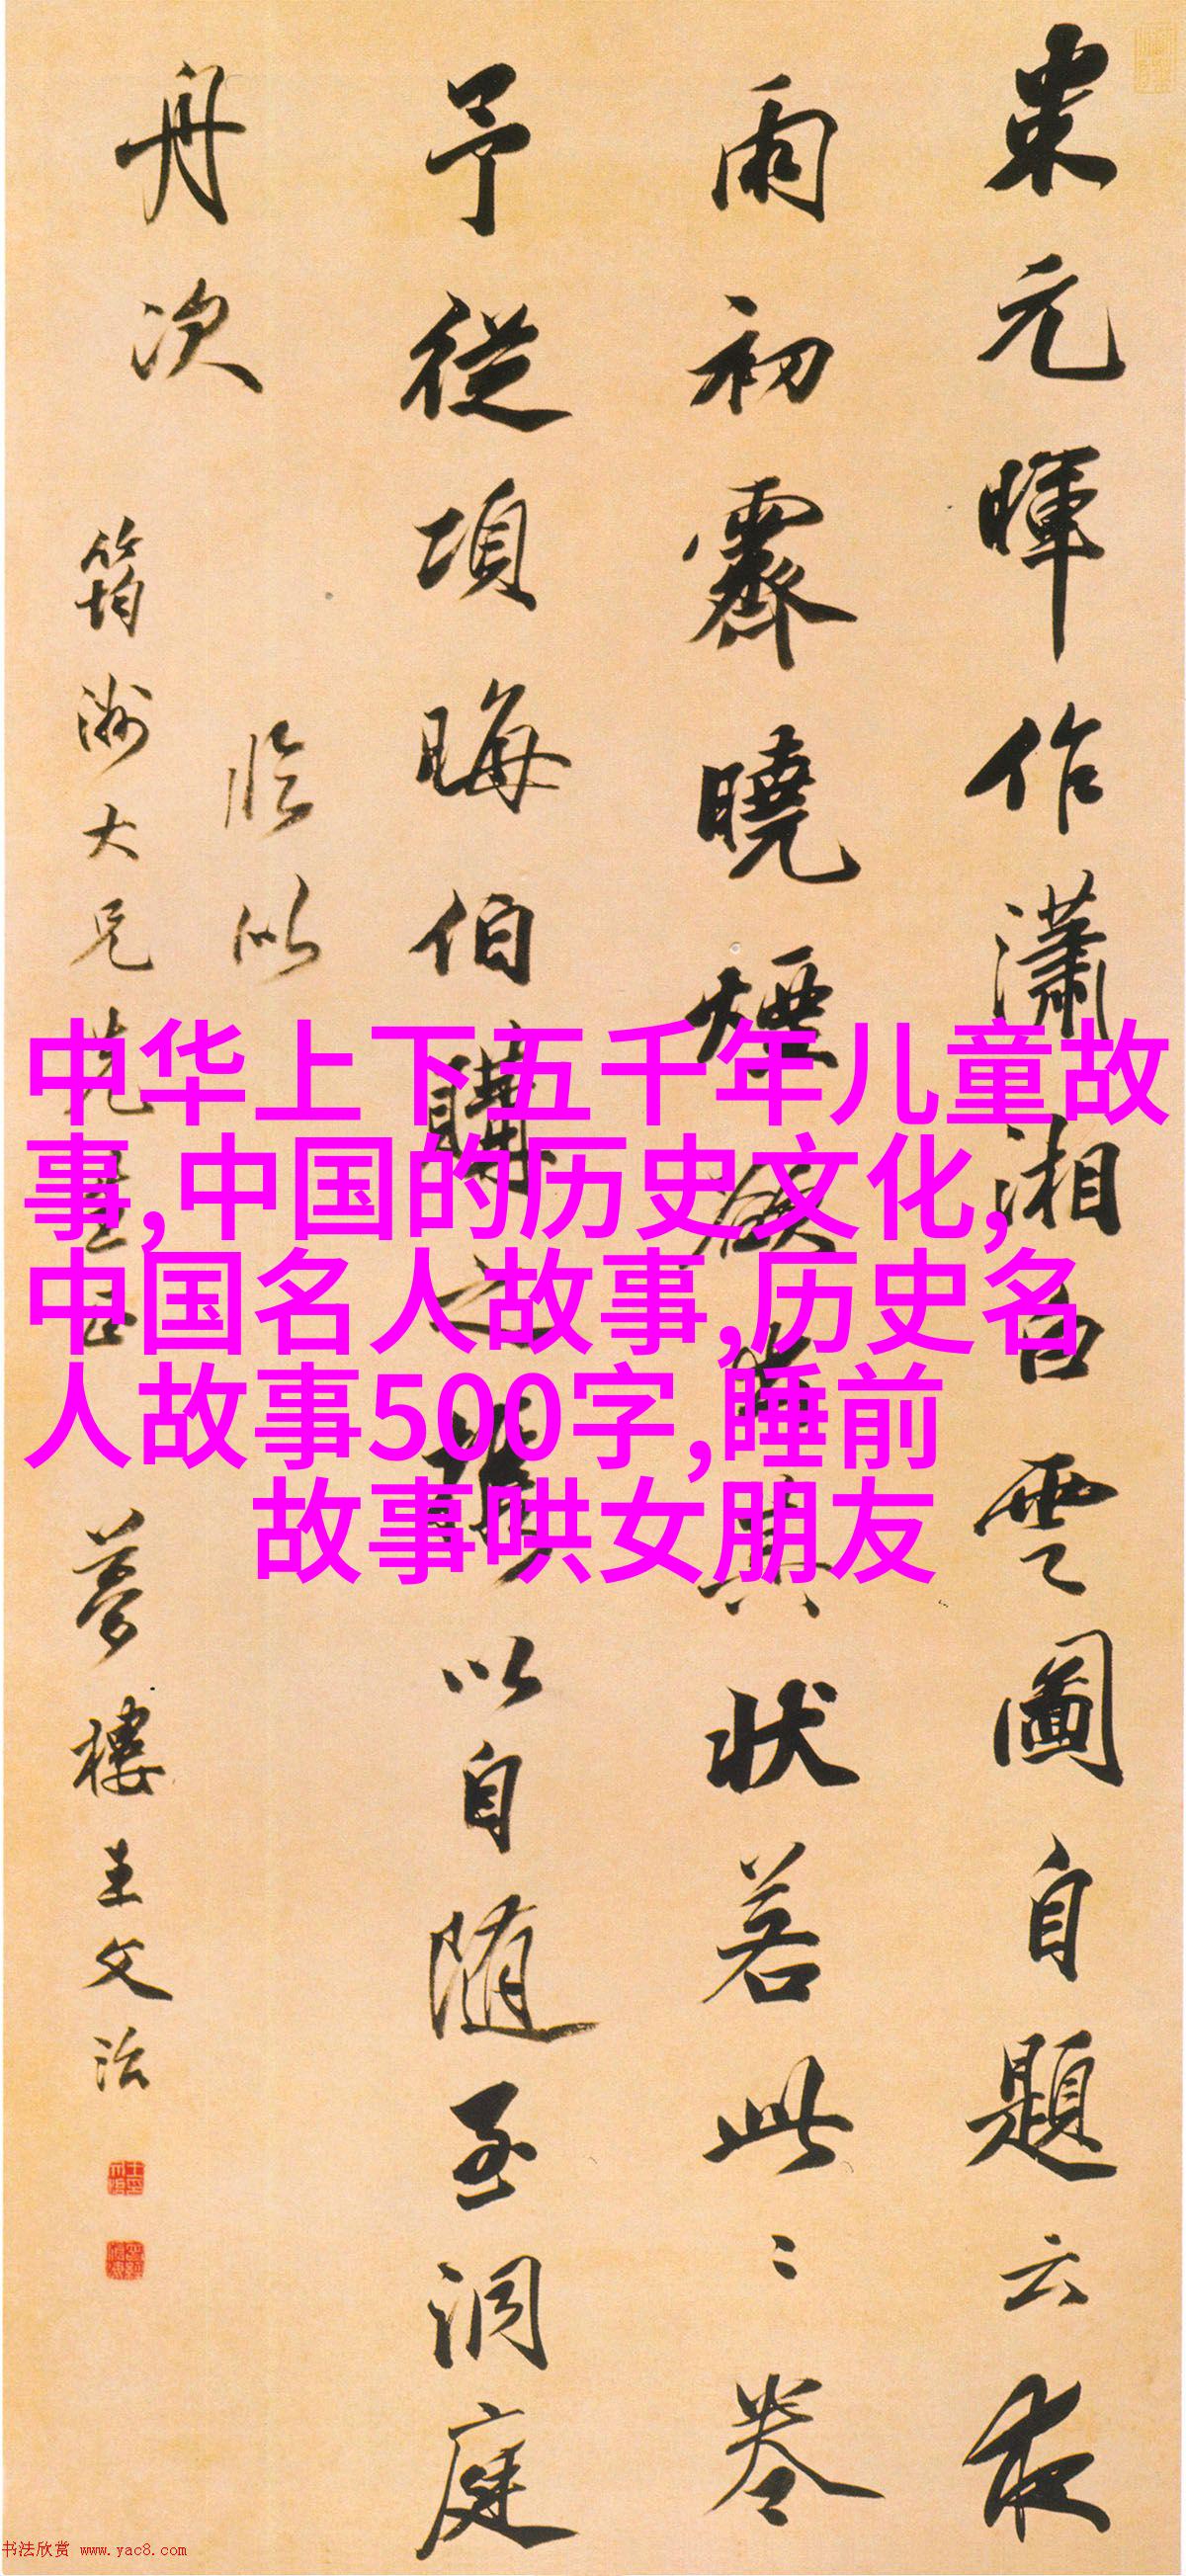 米元暉作瀟湘白雲圖自題云夜
雨初霽曉煙欲出其状若此此卷
予從項晦伯購之携以自随至洞庭
舟次
臨似
筠洲大兄先生正
夢樓王文治
中华上下五千年儿童故
事,中国的历史文化,
中国名人故事,历史名
人故事500字,睡前
故事哄女朋友
书法欣赏 www.yac8.com